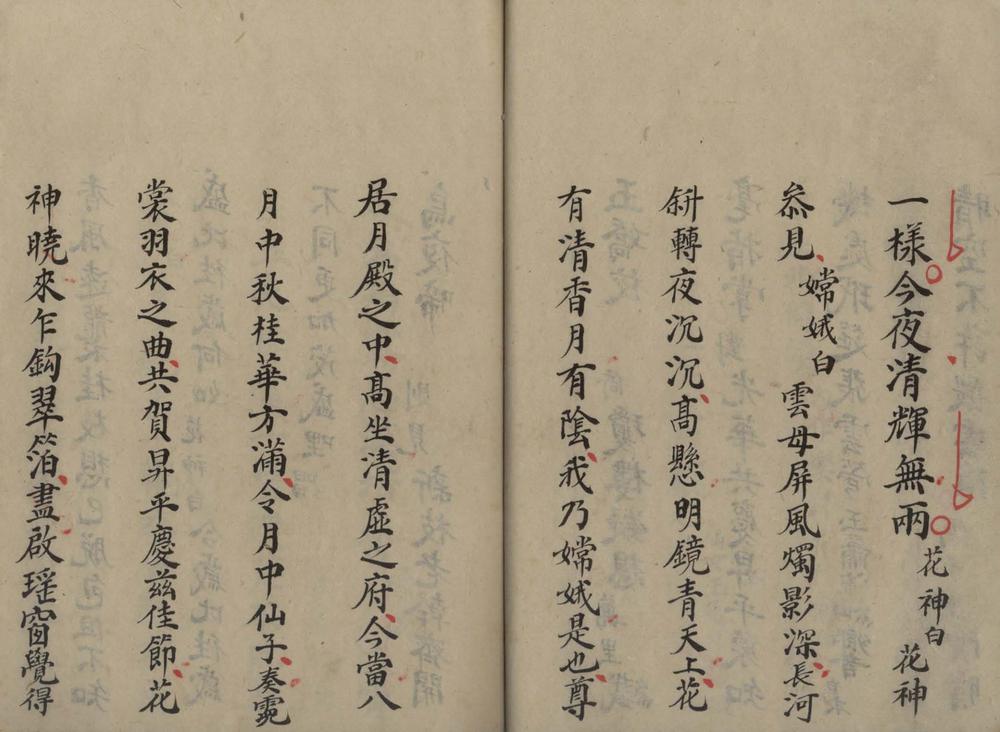 一樣今夜清輝無兩花神白 花神
叅見嫦娥白 雲母屏風燭影深長河
斜轉夜沉沉高懸明鏡青天上花
有清香月有陰我乃嫦娥是也尊
居月殿之中高坐清虛之府今當八
月中秋桂華方滿令月中仙子奏霓
裳羽衣之曲共賀昇平慶兹佳節花
神曉來乍鈎翠箔盡啟瑤窗覺得